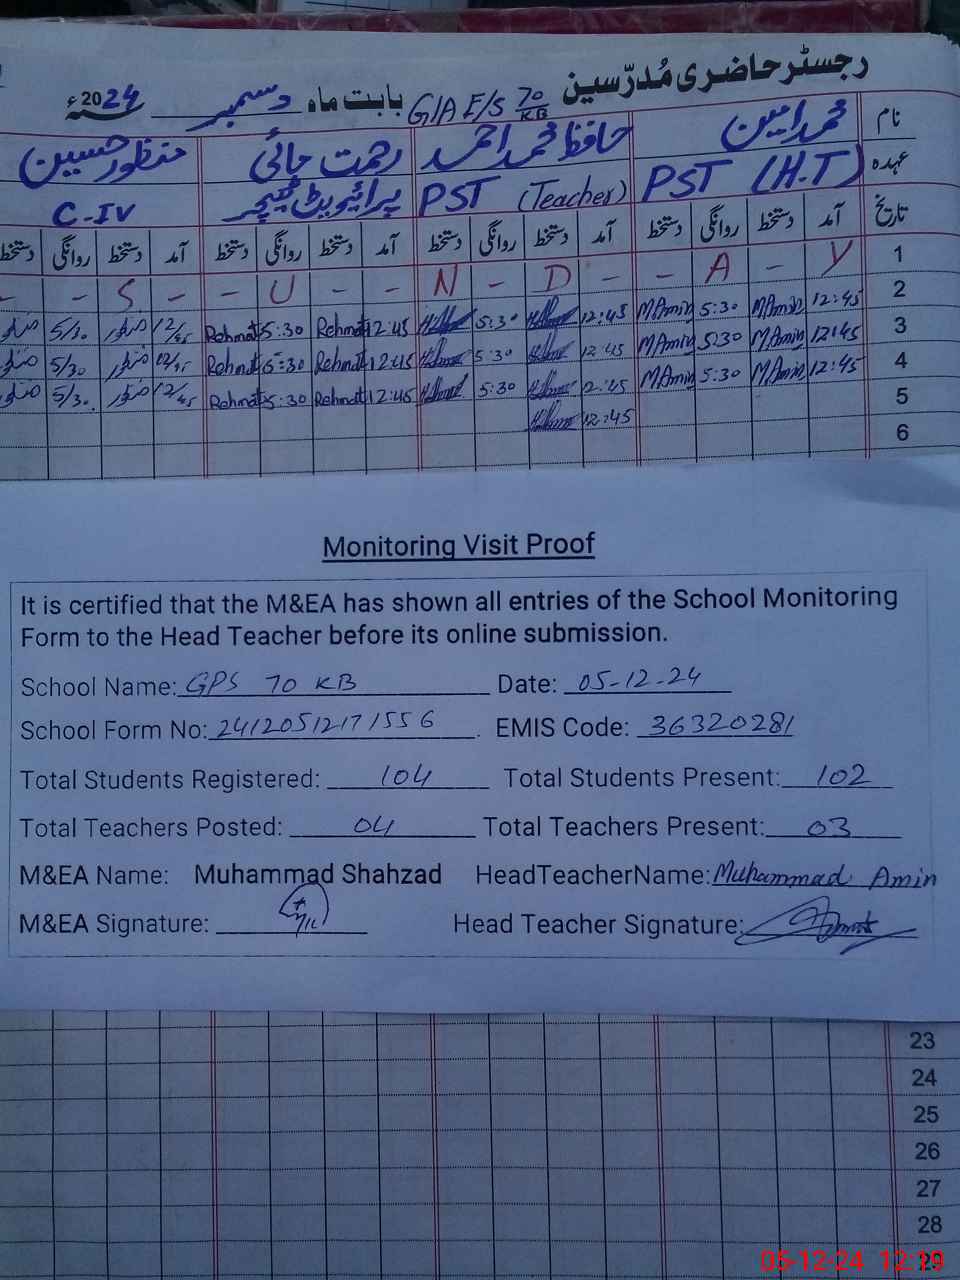 رجسٹر حاضری مُدرّسین G/A E/S 70/KB بابت ماہ دسمبر 2024ء
نام محمد امین حافظ محمد احمد رحمت جائی منظور حسین
عہدہ PST (H.T) PST (Teacher) پرائیویٹ ٹیچر C-IV
تاریخ آمد دستخط روانگی دستخط آمد دستخط روانگی دستخط آمد دستخط روانگی دستخط آمد دستخط روانگی دستخط
1 - - S - - U - - N - D - - A - Y
2 12:45 MAmin 5:30 MAmin 12:45 5:30 12:45 Rehmat 5:30 Rehmat 12/45 منظور 5/30
3 12:45 MAmin 5:30 MAmin 12:45 5:30 12:45 Rehmat 5:30 Rehmat 12/45 منظور 5/30
4 12:45 MAmin 5:30 MAmin 12:45 5:30 12:45 Rehmat 5:30 Rehmat 12/45 منظور 5/30
5 12:45
6
Monitoring Visit Proof
It is certified that the M&EA has shown all entries of the School Monitoring
Form to the Head Teacher before its online submission.
School Name: GPS 70 KB Date: 05-12-24
School Form No: 24120512171556. EMIS Code: 36320281
Total Students Registered: 104 Total Students Present: 102
Total Teachers Posted: 04 Total Teachers Present: 03
M&EA Name: Muhammad Shahzad HeadTeacherName: Muhammad Amin
M&EA Signature: Head Teacher Signature:
23
24
25
26
27
28
29
05-12-24 12:19